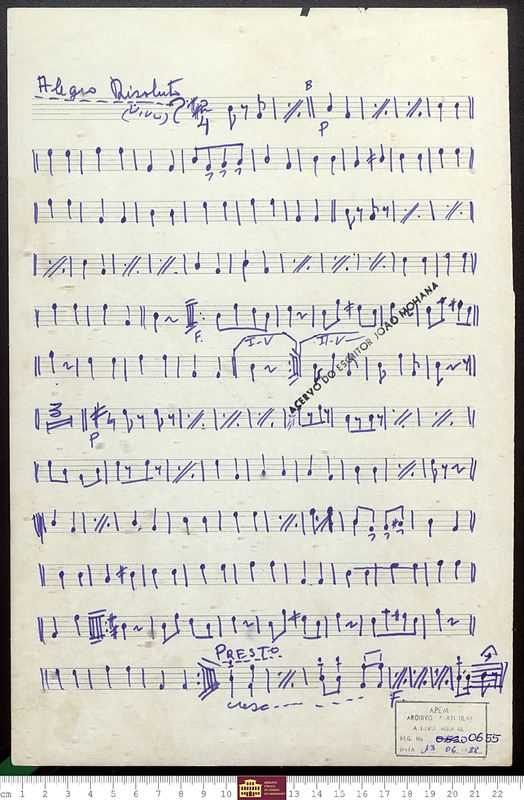 Alegro Risoluto
(Vivo) 2 4
B
P
F.
I-V II-V
ACERVO DO ESCRITOR JOÃO MOHANA
3
P
PRESTO
cresc
F.
APEM
ARQUIVO PARTICULAR
REG. No 0655
DATA 13 06
cm 1 2 3 4 5 6 7 8 9 10 13 14 15 16 17 18 19 20 21 22